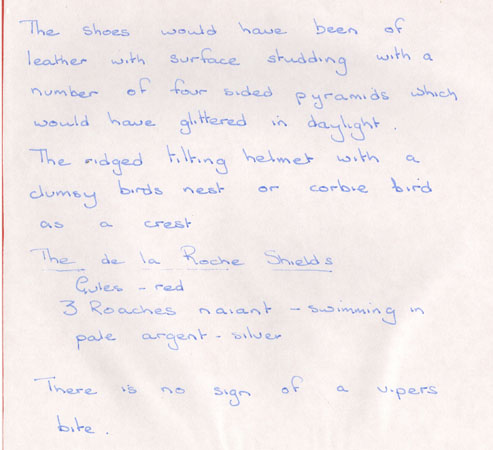 The shoes would have been of
leather with surface studding with a
number of four sided pyramids which
would have glittered in daylight.
The ridged tilting helmet with a
clumsy birds nest or corbie bird
as a crest
The de la Roche Shields
Gules - red
3 Roaches naiant - swimming in
pale argent - silver
There is no sign of a vipers
bite.